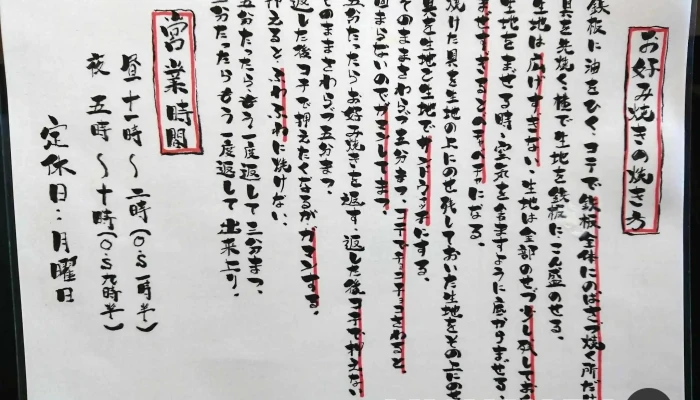 お好み焼きの焼き方
鉄板に油をひく、コテで鉄板全体にのばさず焼く所だけ
具を先焼く、極で生地を鉄板にこん盛のせる。
生地は広げすぎない、生地は全部のせず少し残しておく
生地をまぜる時、空気を含ますように底からまぜる。
ませすぎるとのモチモチになる。
焼けた具を生地の上にのせ残しておいた生地をその上にのせ
具を生地と生地でサンドウィッチにする。
そのままさわらず五分まつ、コテでチョコチョコさわると
固まらないのでガマンしてまつ。
五分たったらお好み焼きを返す、返した後コテで押えない
そのままさわらず五分まつ。
返した後コテで押えたくなるがガマンする。
押えると、ふわふわに焼けない。
五分たったらもう一度返して三分まつ、
三分たったらもう一度返して出来上り。
営業時間
昼十一時〜二時(O.S一時半)
夜五時〜十時(O.S九時半)
定休日:月曜日